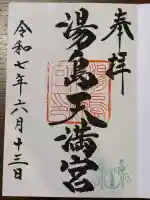 奉拝
湯島天満宮
令和七年六月十三日